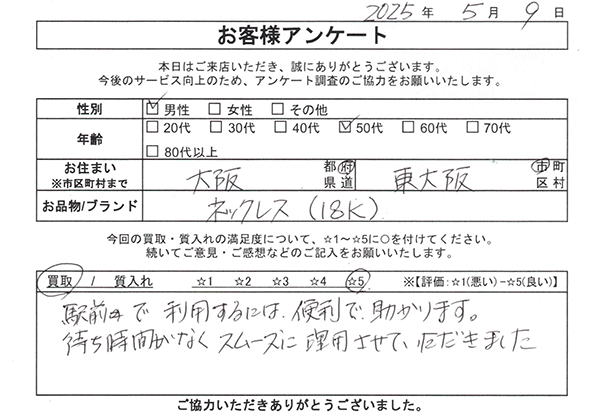 2025年 5月 9日
お客様アンケート
本日はご来店いただき、誠にありがとうございます。
今後のサービス向上のため、アンケート調査のご協力をお願いいたします。
性別 ☑男性 □女性 □その他
年齢 □20代 □30代 □40代 ☑50代 □60代 □70代
□80代以上
お住まい ※市区町村まで 大阪 都府県道 東大阪 市町区村
お品物/ブランド ネックレス(18K)
今回の買取・質入れの満足度について、☆1～☆5に○を付けてください。
続いてご意見・ご感想などのご記入をお願いします。
買取 / 質入れ ☆1 ☆2 ☆3 ☆4 ☆5 ※【評価:☆1(悪い)-☆5(良い)】
駅前で利用するには便利で助かります。
待ち時間がなくスムーズに理用させていただきました
ご協力いただきありがとうございました。